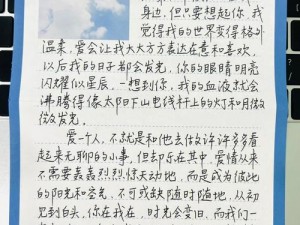 身边，但只要想起你，我
觉得我的世界变得格外
温柔，爱会让我大大方方表达在意和喜欢，
以后我的日子都会发光，你的眼睛明亮
闪耀似星辰，一想到你，我的血液就会
沸腾得像太阳下山电线杆上的灯和月微
微发光。
爱一个人，不就是和他去做许许多多看
起来无聊的小事，但却乐在其中，爱情从来
不需要轰轰烈烈惊天动地，而是成为彼此
的阳光和空气，不可或缺随时随地，从初
见到白头，你在我在，时光会变旧，而我们一